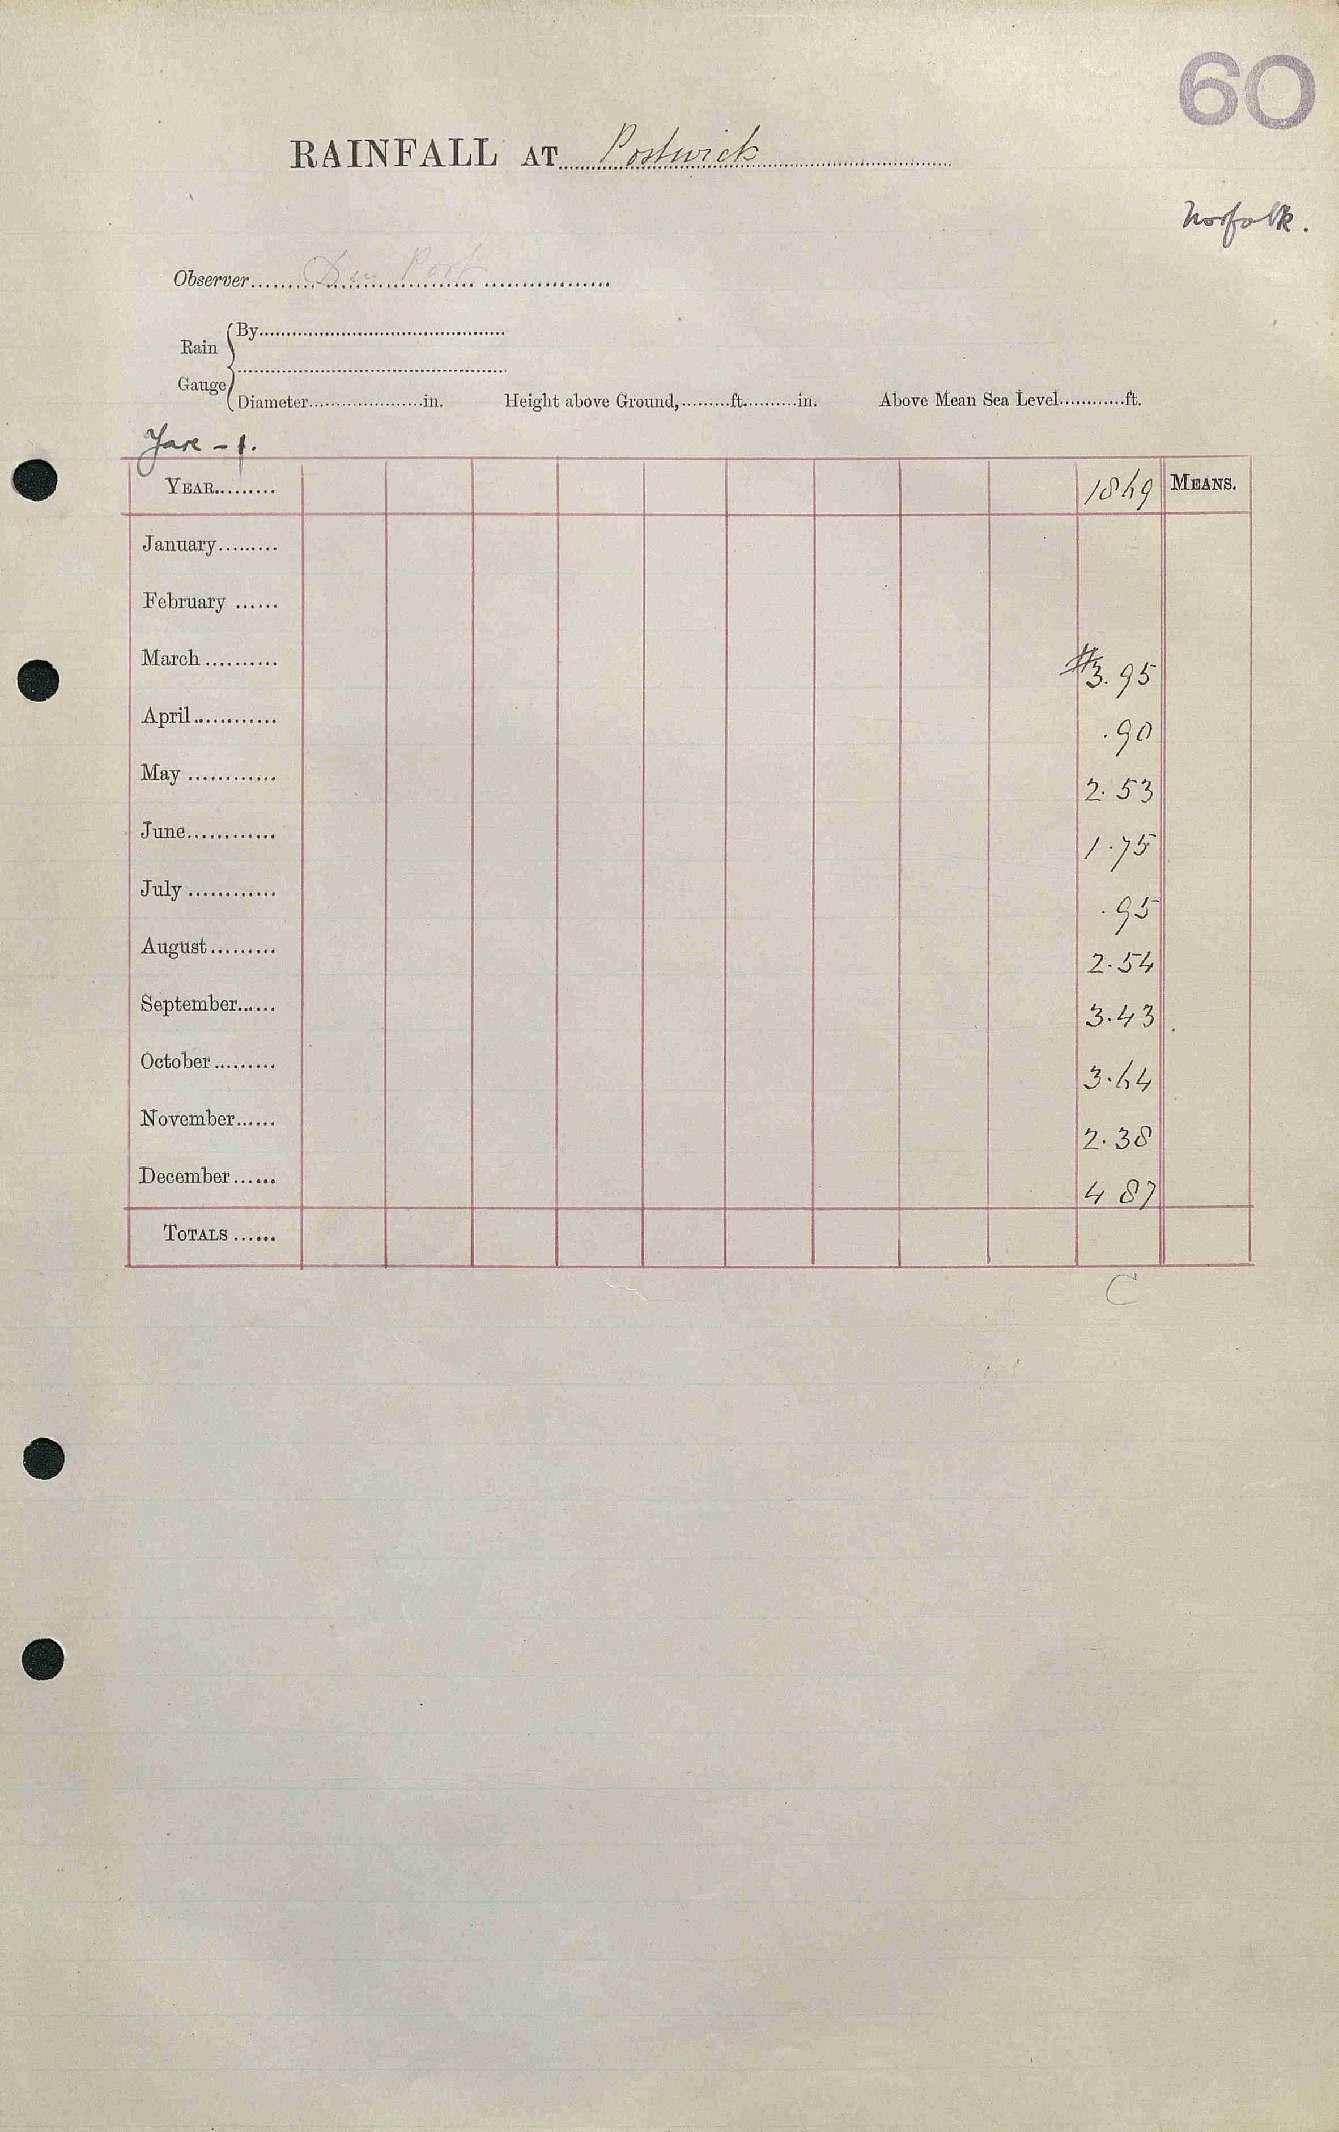 60
RAINFALL AT Postwick
Norfolk.
Observer
Rain Gauge { By
Diameter in. Height above Ground, ft. in. Above Mean Sea Level ft.
Yare - 1.
YEAR 1869 MEANS.
January
February
March 3.95
April .90
May 2.53
June 1.75
July .95
August 2.54
September 3.43
October 3.64
November 2.38
December 4 87
TOTALS
C